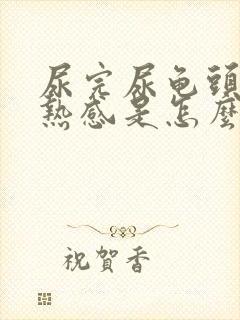 尿完尿龟頭
熱感是怎麼
祝賀香